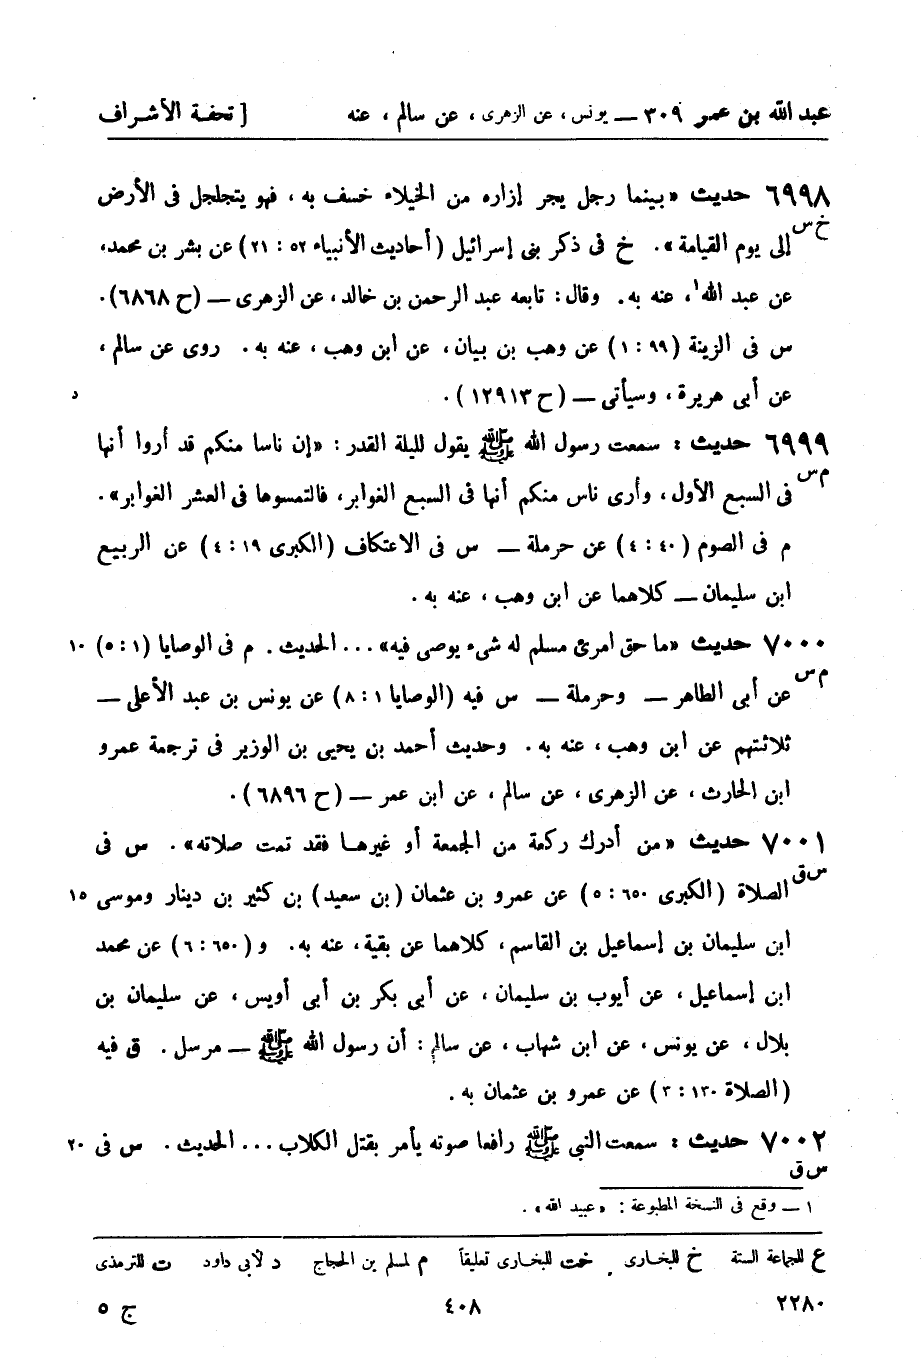 عبد الله بن عمر ٣٠٩ — يونس ، عن الزهرى ، عن سالم ، عنه [ تحفة الأشراف
٦٩٩٨ حديث «بينما رجل يجر إزاره من الخيلاء خسف به ، فهو يتجلجل فى الأرض
خ س
إلى يوم القيامة» . خ فى ذكر بنى إسرائيل (أحاديث الأنبياء ٥٢ : ٢١) عن بشر بن محمد،
عن عبد الله١، عنه به . وقال : تابعه عبد الرحمن بن خالد ، عن الزهرى — (ح ٦٨٦٨) .
س فى الزينة (٩٩ : ١) عن وهب بن بيان ، عن ابن وهب ، عنه به . روى عن سالم ،
عن أبى هريرة ، وسيأتى — (ح ١٢٩١٣) .
٦٩٩٩ حديث : سمعت رسول الله ﷺ يقول لليلة القدر : «إن ناسا منكم قد أروا أنها
م س
فى السبع الأول ، وأرى ناس منكم أنها فى السبع الغوابر ، فالتمسوها فى العشر الغوابر» .
م فى الصوم (٤٠ : ٤) عن حرملة — س فى الاعتكاف (الكبرى ١٩ : ٤) عن الربيع
ابن سليمان — كلاهما عن ابن وهب ، عنه به .
٧٠٠٠ حديث «ما حق امرئ مسلم له شىء يوصى فيه» ... الحديث . م فى الوصايا (١ : ٥) ١٠
م س
عن أبى الطاهر — وحرملة — س فيه (الوصايا ١ : ٨) عن يونس بن عبد الأعلى —
ثلاثتهم عن ابن وهب ، عنه به . وحديث أحمد بن يحيى بن الوزير فى ترجمة عمرو
ابن الحارث ، عن الزهرى ، عن سالم ، عن ابن عمر — (ح ٦٨٩٦) .
٧٠٠١ حديث «من أدرك ركعة من الجمعة أو غيرها فقد تمت صلاته» . س فى
س ق
الصلاة (الكبرى ٦٥٠ : ٥) عن عمرو بن عثمان (بن سعيد) بن كثير بن دينار وموسى ١٥
ابن سليمان بن إسماعيل بن القاسم ، كلاهما عن بقية ، عنه به . و (٦٥٠ : ٦) عن محمد
ابن إسماعيل ، عن أيوب بن سليمان ، عن أبى بكر بن أبى أويس ، عن سليمان بن
بلال ، عن يونس ، عن ابن شهاب ، عن سالم : أن رسول الله ﷺ — مرسل . ق فيه
(الصلاة ١٣٠ : ٣) عن عمرو بن عثمان به .
٧٠٠٢ حديث : سمعت النبى ﷺ رافعا صوته يأمر بقتل الكلاب ... الحديث . س فى ٢٠
س ق
١ — وقع فى النسخة المطبوعة : «عبيد الله» .
ع للجماعة الستة خ للبخارى خت للبخارى تعليقاً م لمسلم بن الحجاج د لأبى داود ت للترمذى
٢٢٨٠ ٤٠٨ ج ٥